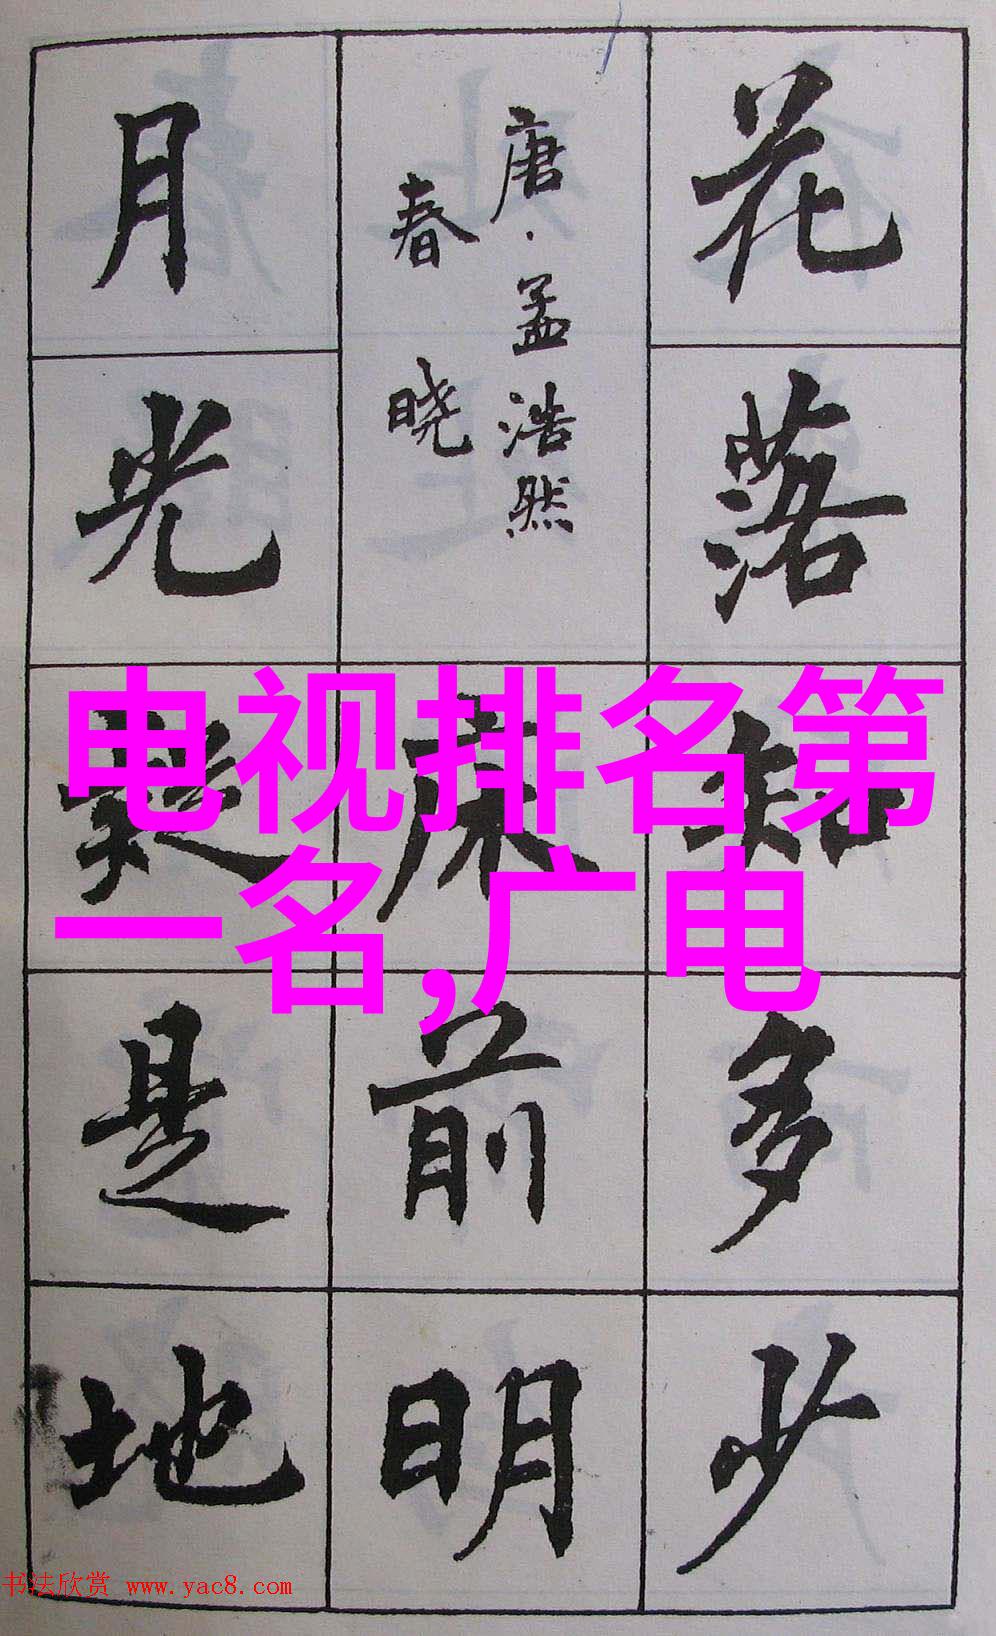 花落知多少
唐·孟浩然
春晓
床前明
月光疑是地
电视排名第
一名,广电
书法欣赏 www.yac8.com